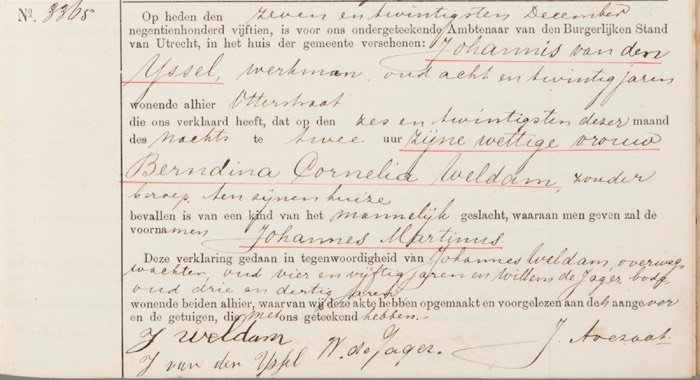 Nº. 3365
Op heden den zeven en twintigsten December
negentienhonderd vijftien, is voor ons ondergeteekende Ambtenaar van den Burgerlijken Stand
van Utrecht, in het huis der gemeente verschenen: Johannis van den
Yssel, werkman, oud acht en twintig jaren
wonende alhier Otterstraat
die ons verklaard heeft, dat op den zes en twintigsten dezer maand
des Nachts te twee uur zijne wettige vrouw
Berndina Cornelia Weldam, zonder
beroep, ten zijnen huize
bevallen is van een kind van het mannelijk geslacht, waaraan men geven zal de
voornamen Johannes Martinus
Deze verklaring gedaan in tegenwoordigheid van Johannes Weldam, overweg-
wachter, oud vier en vijftig jaren en Willem de Jager, bode,
oud drie en dertig jaren
wonende beiden alhier, waarvan wij deze akte hebben opgemaakt en voorgelezen aan den aangever
en de getuigen, die met ons geteekend hebben.-
J Weldam
J van den Yssel W. de Jager. J. Avezaat.